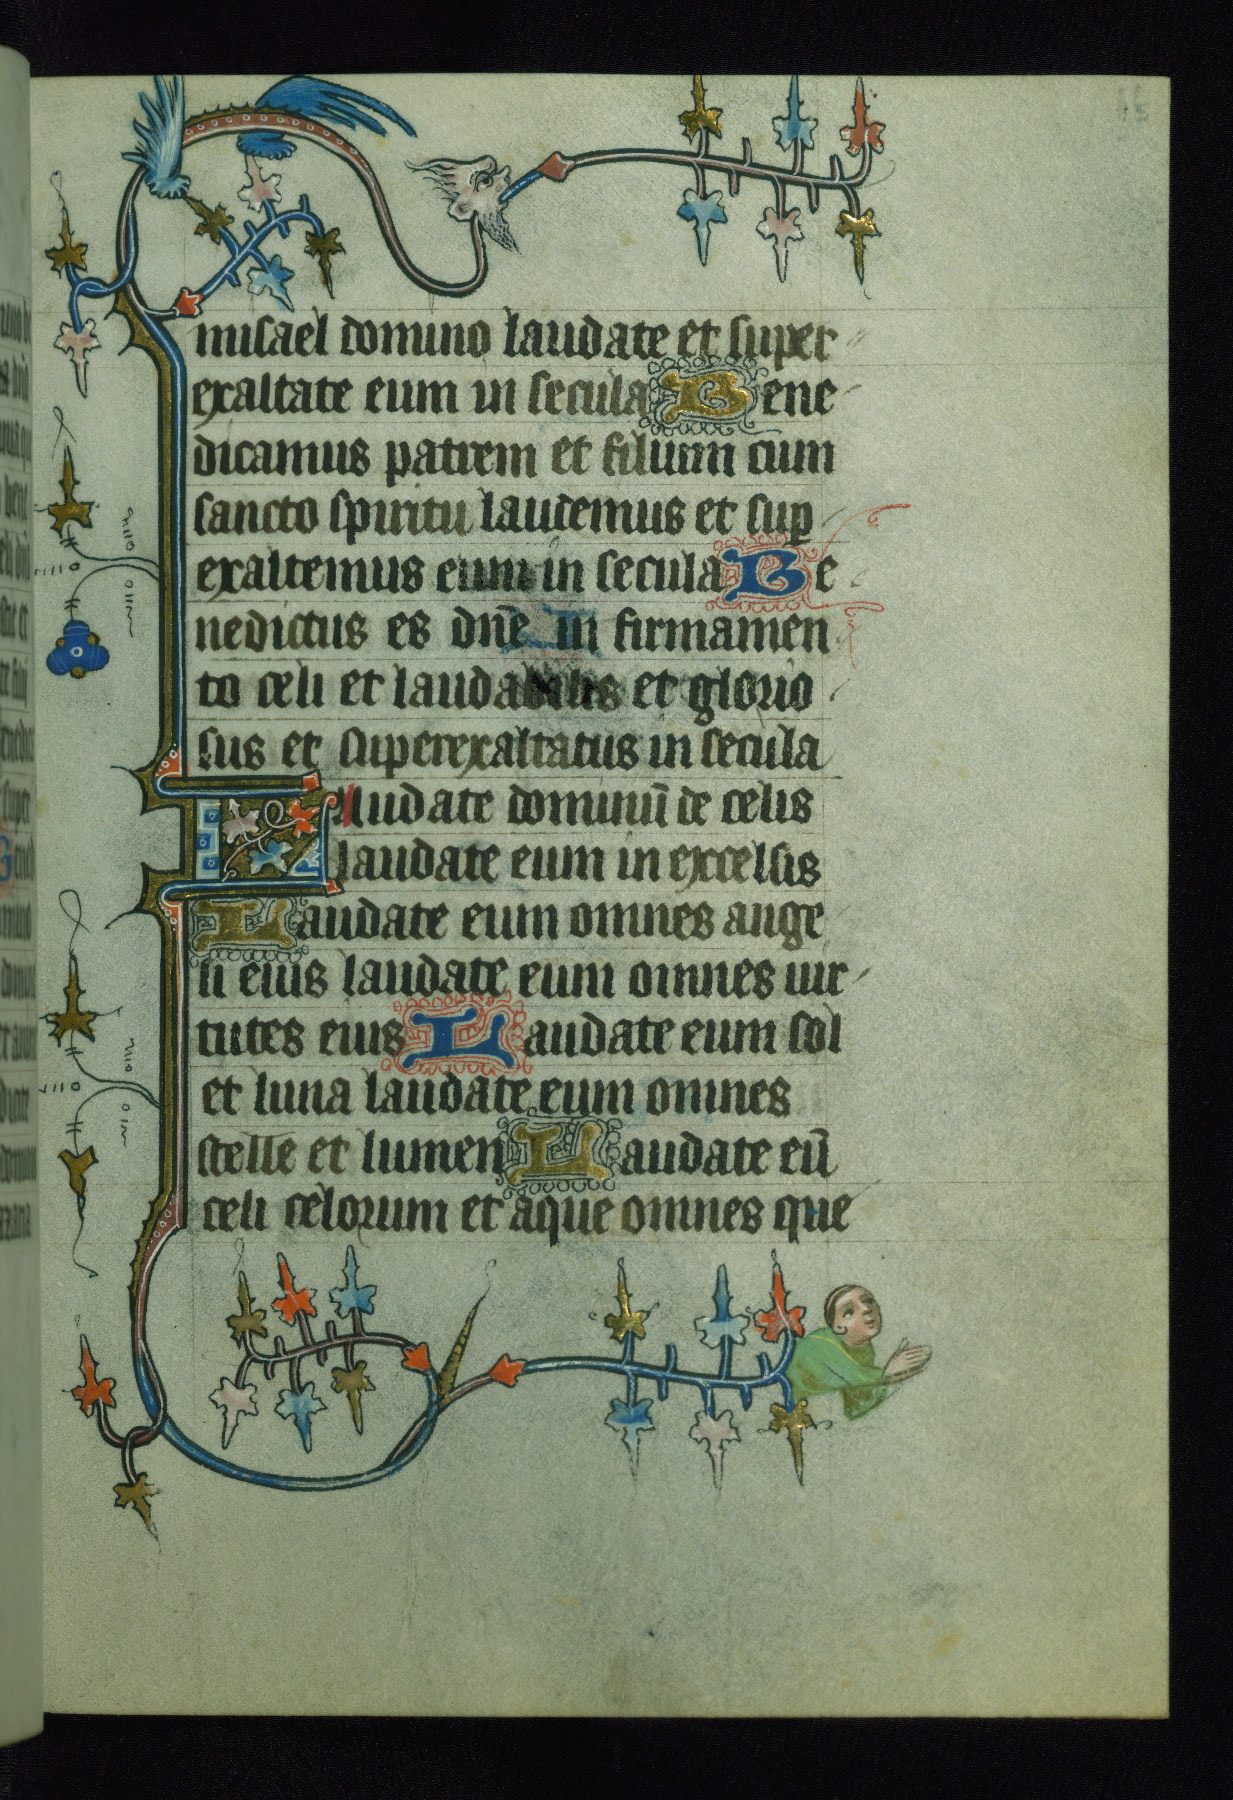 misael domino laudate et super
exaltate eum in secula Bene
dicamus patrem et filium cum
sancto spiritu laudemus et sup
exaltemus eum in secula Be
nedictus es dñe in firmamen
to celi et laudabilis et glorio
sus et superexaltatus in secula
Laudate dominū de celis
laudate eum in excelsis
Laudate eum omnes ange
li eius laudate eum omnes uir
tutes eius Laudate eum sol
et luna laudate eum omnes
stelle et lumen Laudate eū
celi celorum et aque omnes que